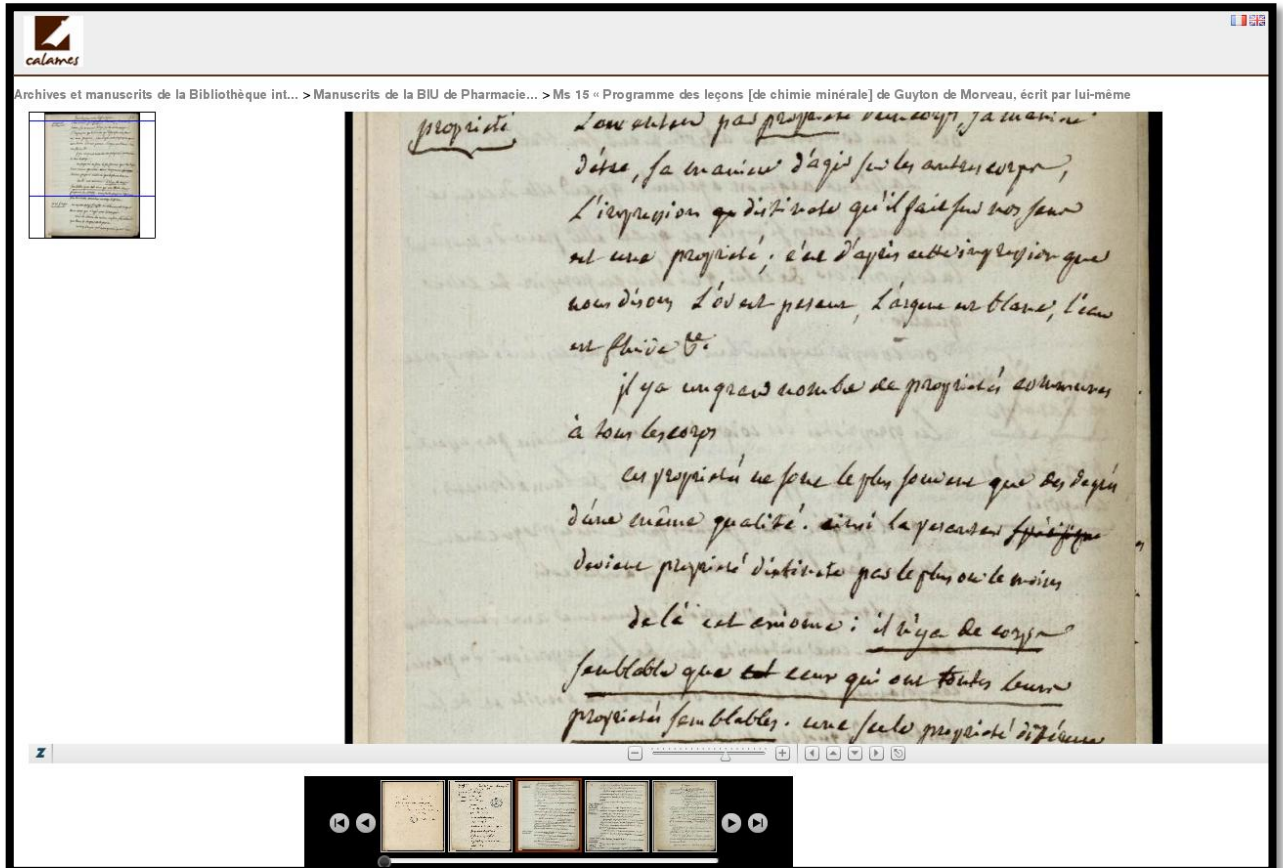 calames
Archives et manuscrits de la Bibliothèque int... > Manuscrits de la BIU de Pharmacie... > Ms 15 « Programme des leçons [de chimie minérale] de Guyton de Morveau, écrit par lui-même
propriété
L'on entend par propriété d'un corps, sa maniere
d'etre, sa maniere d'agir sur les autres corps,
L'impression distincte qu'il fait sur nos sens
est une propriété; c'est d'après cette impression que
nous disons L'or est pesant, L'argent est blanc, l'eau
est fluide &c.
il y a un grand nombre de propriétés communes
à tous les corps
ces propriétés ne sont le plus souvent que des degrés
d'une même qualité. ainsi la pesanteur spécifique
devient propriété distincte par le plus ou le moins
de là cet axiome: il n'y a de corps
semblables que ceux qui ont toutes leurs
propriétés semblables. une seule propriété différente
Z